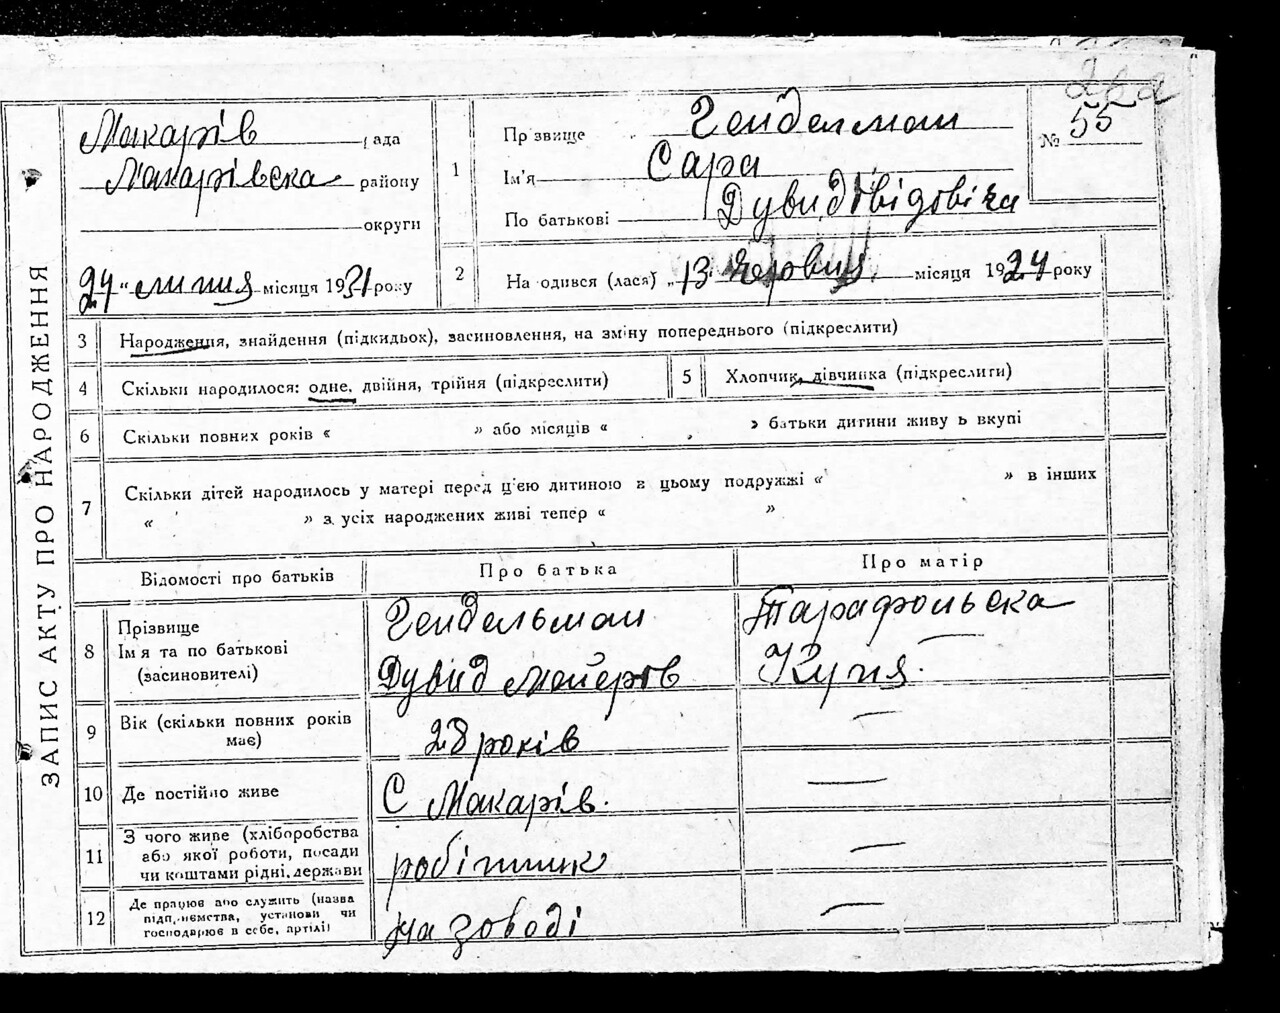 два
ЗАПИС АКТУ ПРО НАРОДЖЕННЯ
Макарів рада
Макарівська району
округи
24 " липня місяця 1931 року
1
Прізвище Гендельман
Ім'я Сара
По батькові
№ 55
2
На одився (лася) " 13 червня місяця 1924 року
3 Народження, знайдення (підкидьок), засиновлення, на зміну попереднього (підкреслити)
4 Скільки народилося: одне, двійня, трійня (підкреслити)
5 Хлопчик, дівчинка (підкреслити)
6 Скільки повних років « » або місяців « » батьки дитини живу ь вкупі
7 Скільки дітей народилось у матері перед ц'єю дитиною в цьому подружжі « » в інших
« » з усіх народжених живі тепер « »
Відомості про батьків
Про батька
Про матір
8 Прізвище
Ім я та по батькові
(засиновителі)
Гендельман
Дувид Мойеров
Тарафольска
Куня
9 Вік (скільки повних років
має)
28 років
10 Де постійно живе
С Макарів.
11 З чого живе (хліборобства
або якої роботи, посади
чи коштами рідні, держави
робітник
12 Де працює або служить (назва
підп,иємства, установи чи
господарює в себе, артілі)
на зоводі